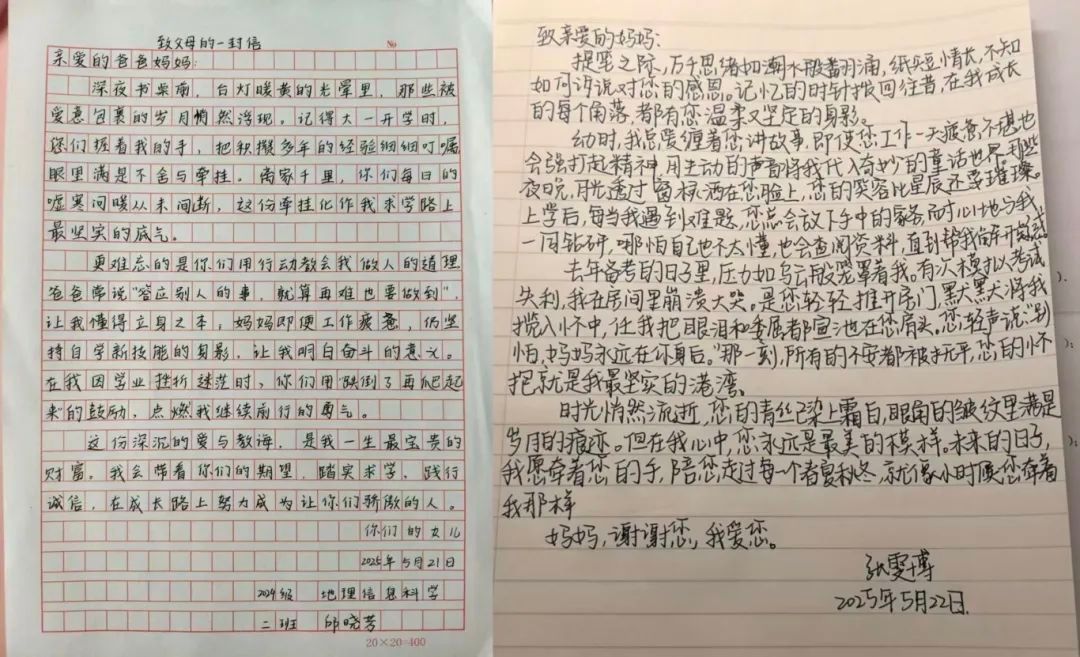 致父母的一封信
No
亲爱的爸爸妈妈:
深夜书桌前，台灯暖黄的光晕里，那些被
爱意包裹的岁月悄然浮现。记得大一开学时，
您们握着我的手，把积攒多年的经验细细叮嘱
眼里满是不舍与牵挂。离家千里，你们每日的
嘘寒问暖从未间断，这份牵挂化作我求学路上
最坚实的底气。
更难忘的是你们用行动教会我做人的道理
爸爸常说"答应别人的事，就算再难也要做到"，
让我懂得立身之本。妈妈即便工作疲惫，仍坚
持自学新技能的身影，让我明白奋斗的意义。
在我因学业挫折迷茫时，你们用"跌倒了再爬起
来"的鼓励，点燃我继续前行的勇气。
这份深沉的爱与教诲，是我一生最宝贵的
财富。我会带着你们的期望，踏实求学，践行
诚信，在成长路上努力成为让你们骄傲的人。
你们的女儿
2025年5月21日
2024级 地理信息科学
二班 邱晓芳
20×20=400
致亲爱的妈妈:
提笔之际，万千思绪如潮水般翻涌，纸短情长，不知
如何诉说对您的感恩。记忆的时针拨回往昔，在我成长
的每个角落，都有您温柔又坚定的身影。
幼时，我总爱缠着您讲故事，即使您工作一天疲惫不堪也
会强打起精神，用生动的声音将我代入奇妙的童话世界。那些
夜晚，月光透过窗棂洒在您脸上，您的笑容比星辰还要璀璨。
上学后，每当我遇到难题，您总会放下手中的家务，耐心地与我
一同钻研，哪怕自己也不太懂，也会查阅资料，直到帮我解开
去年备考的日子里，压力如乌云般笼罩着我。有次模拟考试
失利，我在房间里崩溃大哭。是您轻轻推开房门，默默将我
揽入怀中，任我把眼泪和委屈都宣泄在您肩头。您轻声说:"别
怕，妈妈永远在你身后。"那一刻，所有的不安都被抚平，您的怀
抱就是我最坚实的港湾。
时光悄然流逝，您的青丝已染上霜白，眼角的皱纹里满是
岁月的痕迹。但在我心中，您永远是最美的模样。未来的日子，
我愿牵着您的手，陪您走过每一个春夏秋冬，就像小时候您牵着
我那样
妈妈，谢谢您，我爱您。
张雯博
2025年5月22日.